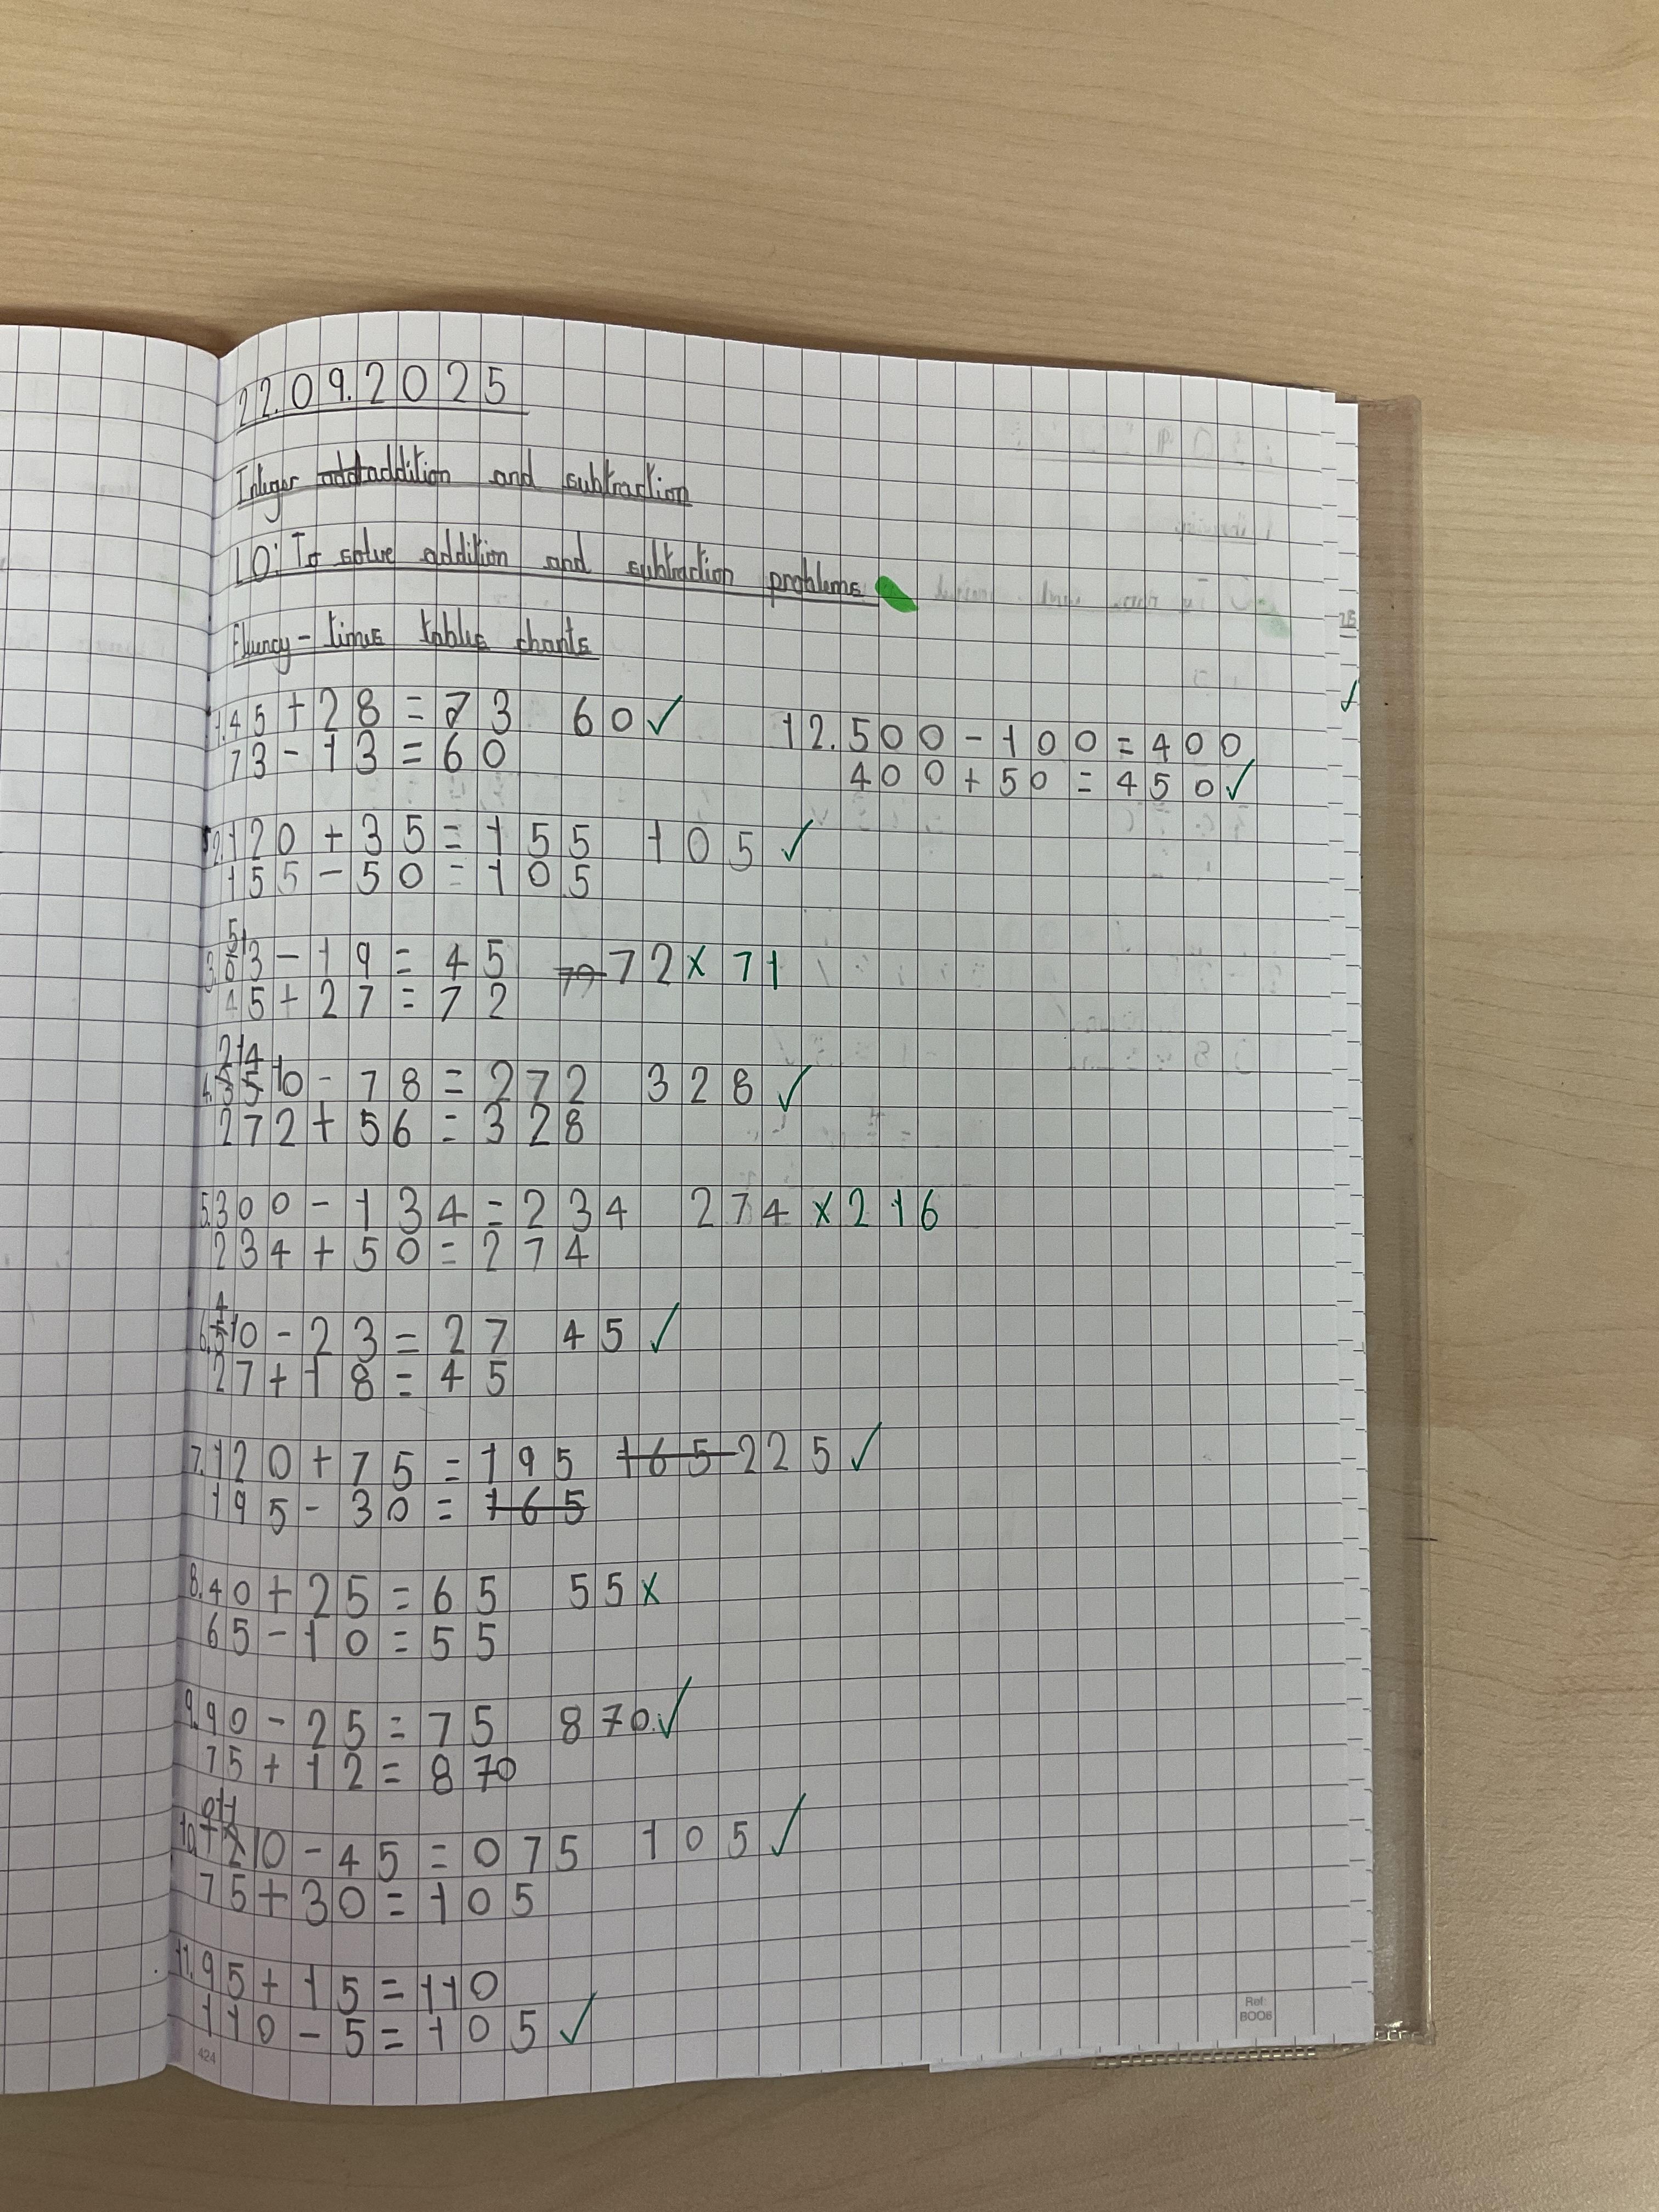 22.09.2025
Integer addition and subtraction
LO: To solve addition and subtraction problems
Fluency - times tables chants
1. 45 + 28 = 73 60 ✓
73 - 13 = 60
2. 120 + 35 = 155 105 ✓
155 - 50 = 105
5 1
3. 63 - 19 = 45 72 x 71
45 + 27 = 72
2 14
4. 3510 - 78 = 272 328 ✓
272 + 56 = 328
5. 300 - 134 = 234 274 x 216
234 + 50 = 274
4
6. 510 - 23 = 27 45 ✓
27 + 18 = 45
7. 120 + 75 = 195 165 225 ✓
195 - 30 = 165
8. 40 + 25 = 65 55 x
65 - 10 = 55
9. 90 - 25 = 75 870 ✓
75 + 12 = 870
0 11
10. 1210 - 45 = 075 105 ✓
75 + 30 = 105
11. 95 + 15 = 110
110 - 5 = 105 ✓
12. 500 - 100 = 400
400 + 50 = 450 ✓
424
Ref:
BOO6